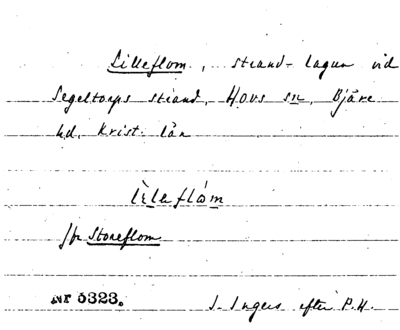 Lilleflom, strand-lagun vid
Segeltorps strand, Hovs sn, Bjäre
hd, Krist. län
lèleflóm
jfr Storeflom
Nr 5323.
I. Ingers efter P.H.